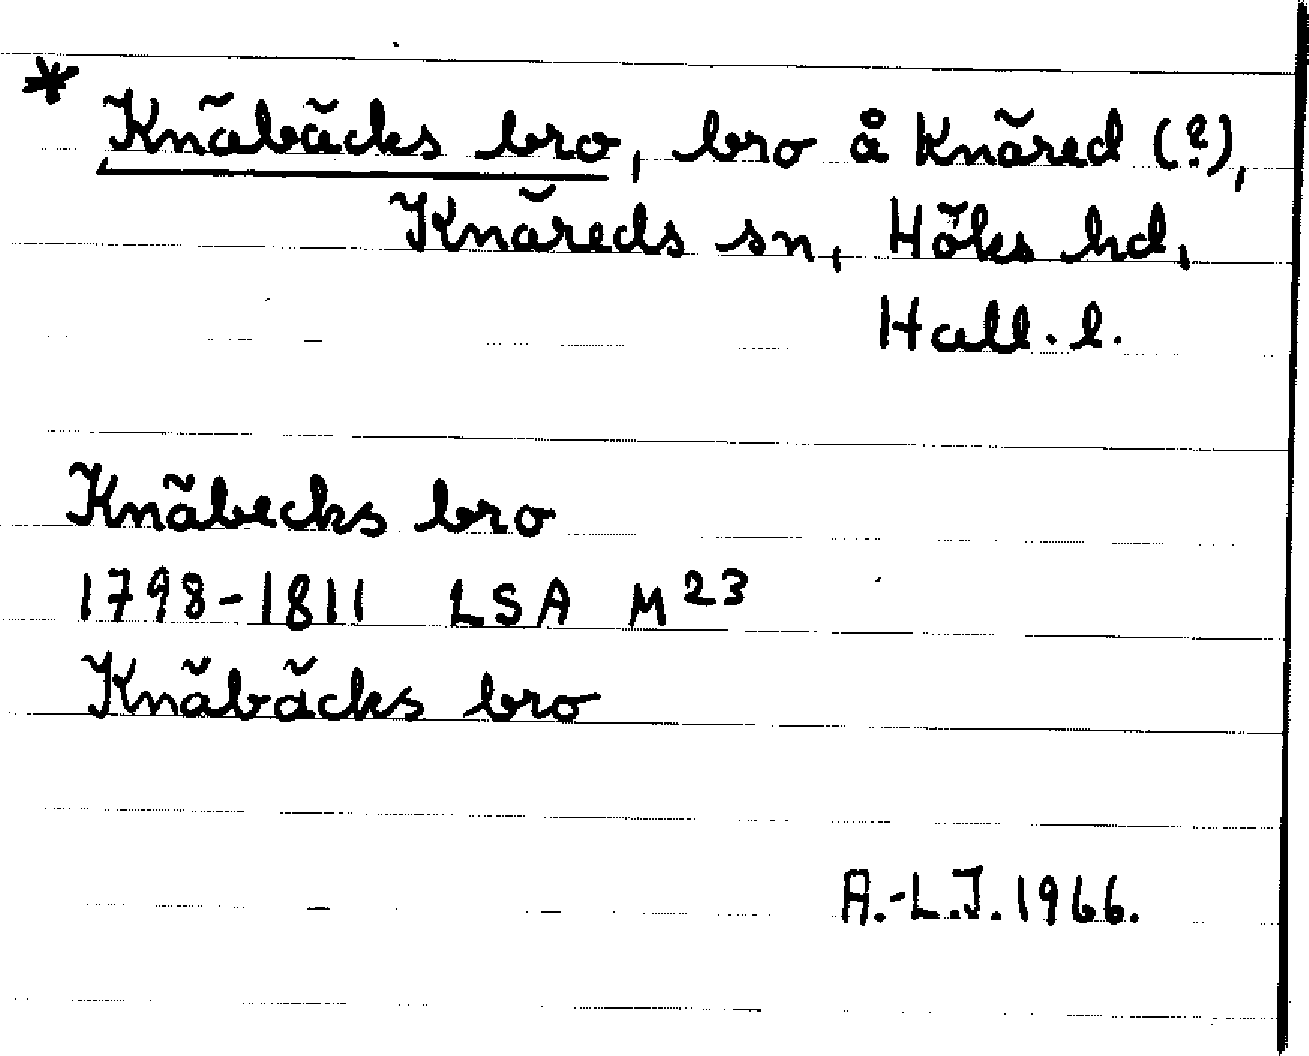 * Knäbäcks bro, bro å Knäred (?),
Knäreds sn, Höks hd,
Hall. l.
Knäbecks bro
1798-1811 LSA M 23
Knäbäcks bro
A.-L.J. 1966.